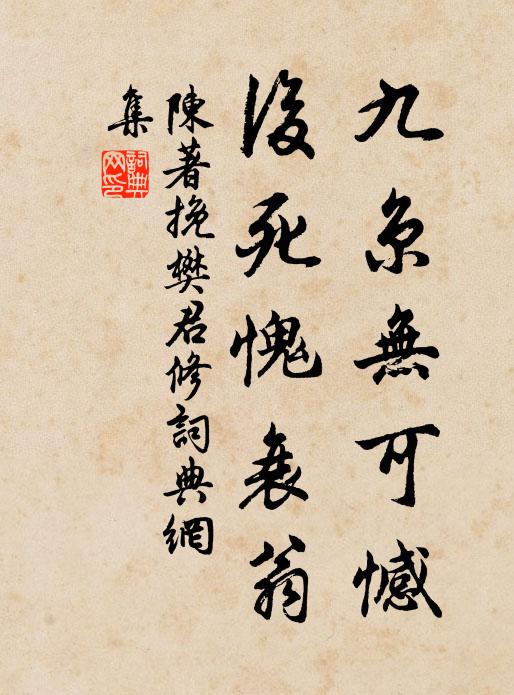 九京無可憾
後死愧衰翁
陳著挽樊君修詞典網
集
詞典
网印